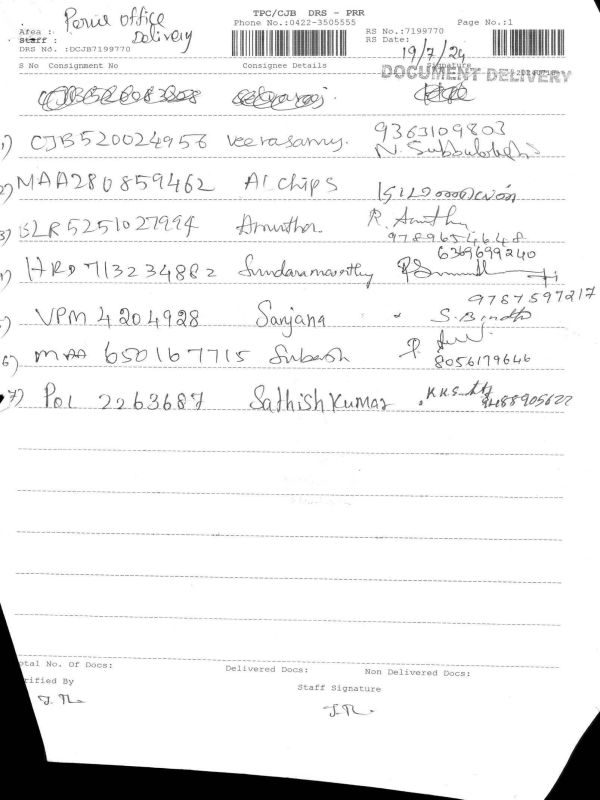 TPC/CJB DRS - PRR
Phone No.:0422-3505555
Page No.:1
Area :
office
Delivery
Staff :
DRS No. :DCJB7199770
RS No.:7199770
RS Date:
19/7/24
S No Consignment No
Consignee Details
Signature
DOCUMENT DELIVERY
1) CJB520024956 Veerasamy. 9363109803
2) MAA280859462 AI chips
3) BLR5251027994 Amutha R. Amutha
9789654648
6369699240
4) HRD713234882 Sundaramoorthy
9787597217
5) VPM 4204928 Sanjana
6) MAA 650167715 Subash
8056179646
7) POL 2263687 Sathish Kumar
9488905622
otal No. Of Docs:
Delivered Docs:
Non Delivered Docs:
rified By
Staff Signature